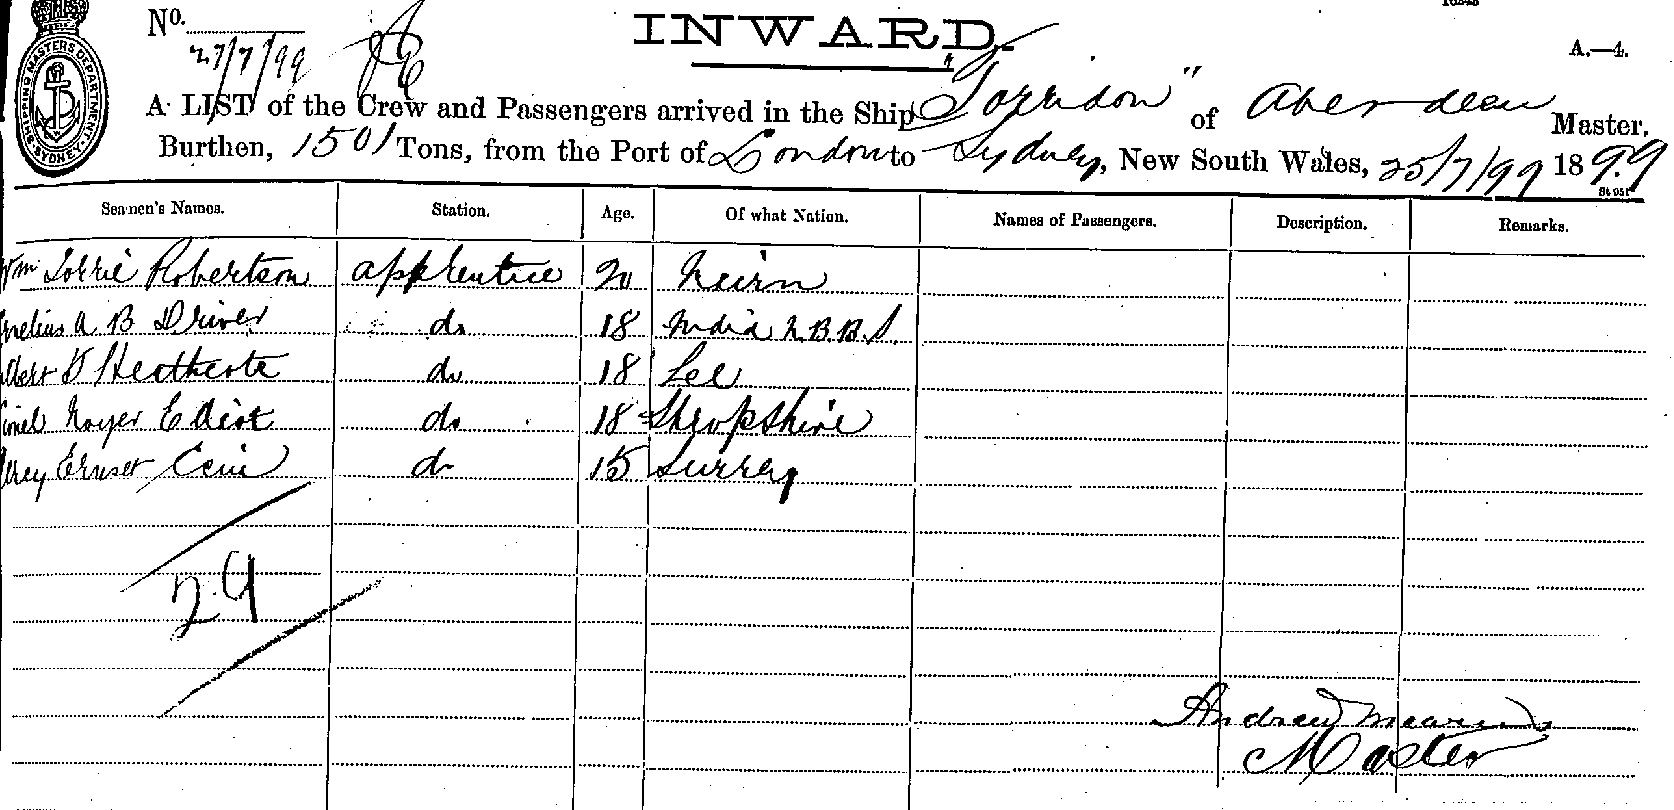 SHIPPING MASTERS DEPARTMENT. SYDNEY
No. 27/7/99
INWARD.
A.—4.
A LIST of the Crew and Passengers arrived in the Ship "Torridon" of Aberdeen Master,
Burthen, 1501 Tons, from the Port of London to Sydney, New South Wales, 25/7/99 1899
Seamen's Names. Station. Age. Of what Nation. Names of Passengers. Description. Remarks.
Wm Lorrie Robertson apprentice 20 Nairn
A B Driver do 18 India N.B.B.S.
Heathcote do 18 Lee
Eliot do 18 Shropshire
Ernest do 15 Surrey
29
Andrew Mearns
Master